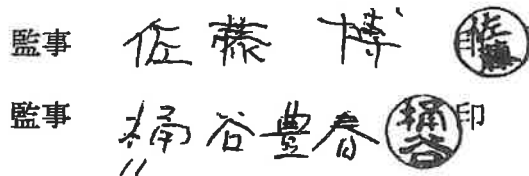 監事 佐藤 博 印 佐藤
監事 桶谷豊春 桶谷 印